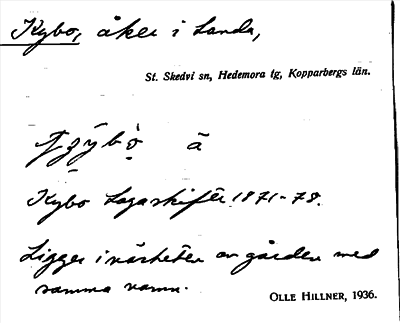 Kybo, åker i Landa,
St. Skedvi sn, Hedemora tg, Kopparbergs län.
å
Kybo Lagaskifte 1871-78.
Ligger i närheten av gården med
samma namn.
OLLE HILLNER, 1936.